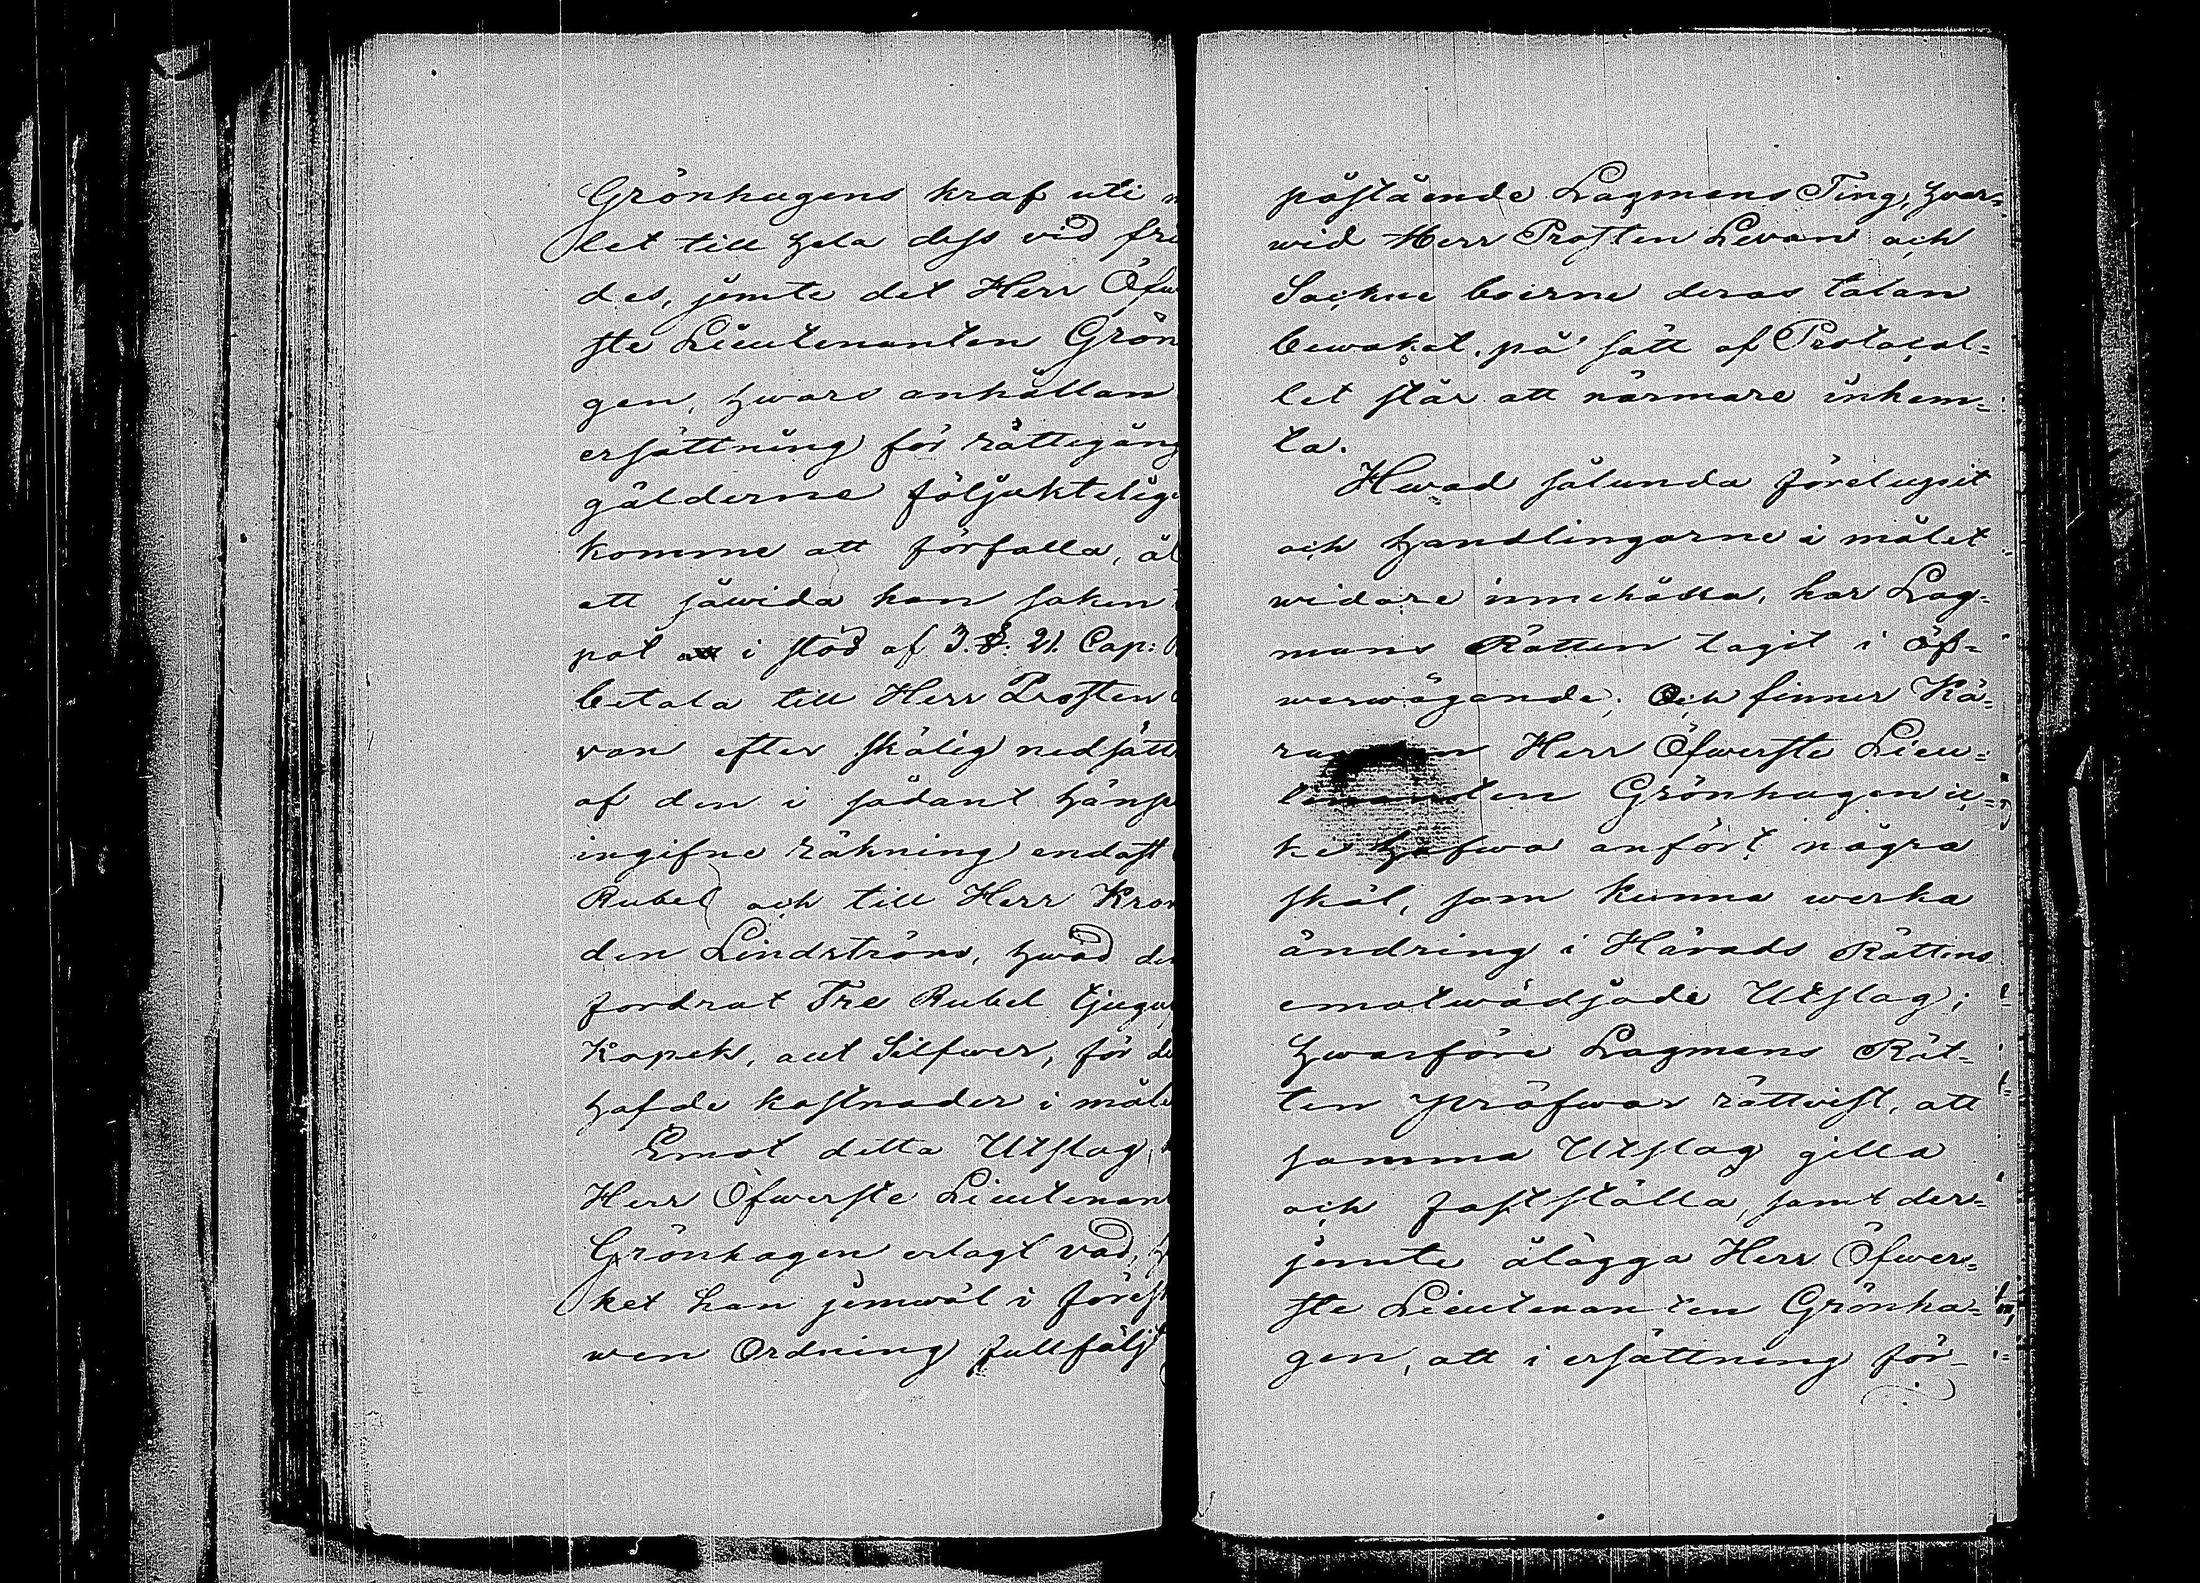 Grönhagens kraf uti
let till hela dess vid fri
des, jemte det Herr Öfw
ste Lieutenanten Grön
gen, hwars anhållan
ersättning för rättegång
gälderne följaktelige
komme att förfalla, ål
att såwida han saken
pat i stöd af 3. §. 21. Cap:
betala till Herr Prosten
van efter skälig nedsätt
af den i sådant hänse
ingifne räkning endast
Rubel och till Herr Kron
den Lindström, hwad den
fordrat Tre Rubel tjugu
Kopek, allt Silfwer, för de
hafde kostnader i måle
Emot detta Utslag
Herr Öfwerste Lieutenant
Grönhagen erlagt vad, h
ket han jemwäl i föresk
wen Ordning fullfölj
påstående Lagmans Ting, hwar=
wid Herr Prosten Levan och
Sockne boerne deras talan
bewakat, på sätt af Protocol=
let står att närmare inhem=
ta.
Hwad sålunda förelupit
och Handlingarne i målet
widare innehålla, har Lag=
mans Rätten tagit i öf=
werwägande; Och finner Kä=
randen Herr Öfwerste Lieu=
tenanten Grönhagen ic=
ke hafwa anfört några
skäl, som kunna werka
ändring i Härads Rättens
emotwädjade Utslag;
Hwarföre Lagmans Rät=
ten pröfwar rättvist, att
samma Utslag gilla
och fastställa, samt der=
jemte ålägga Herr Öfwer=
ste Lieutenanten Grönha=
gen, att i ersättning för